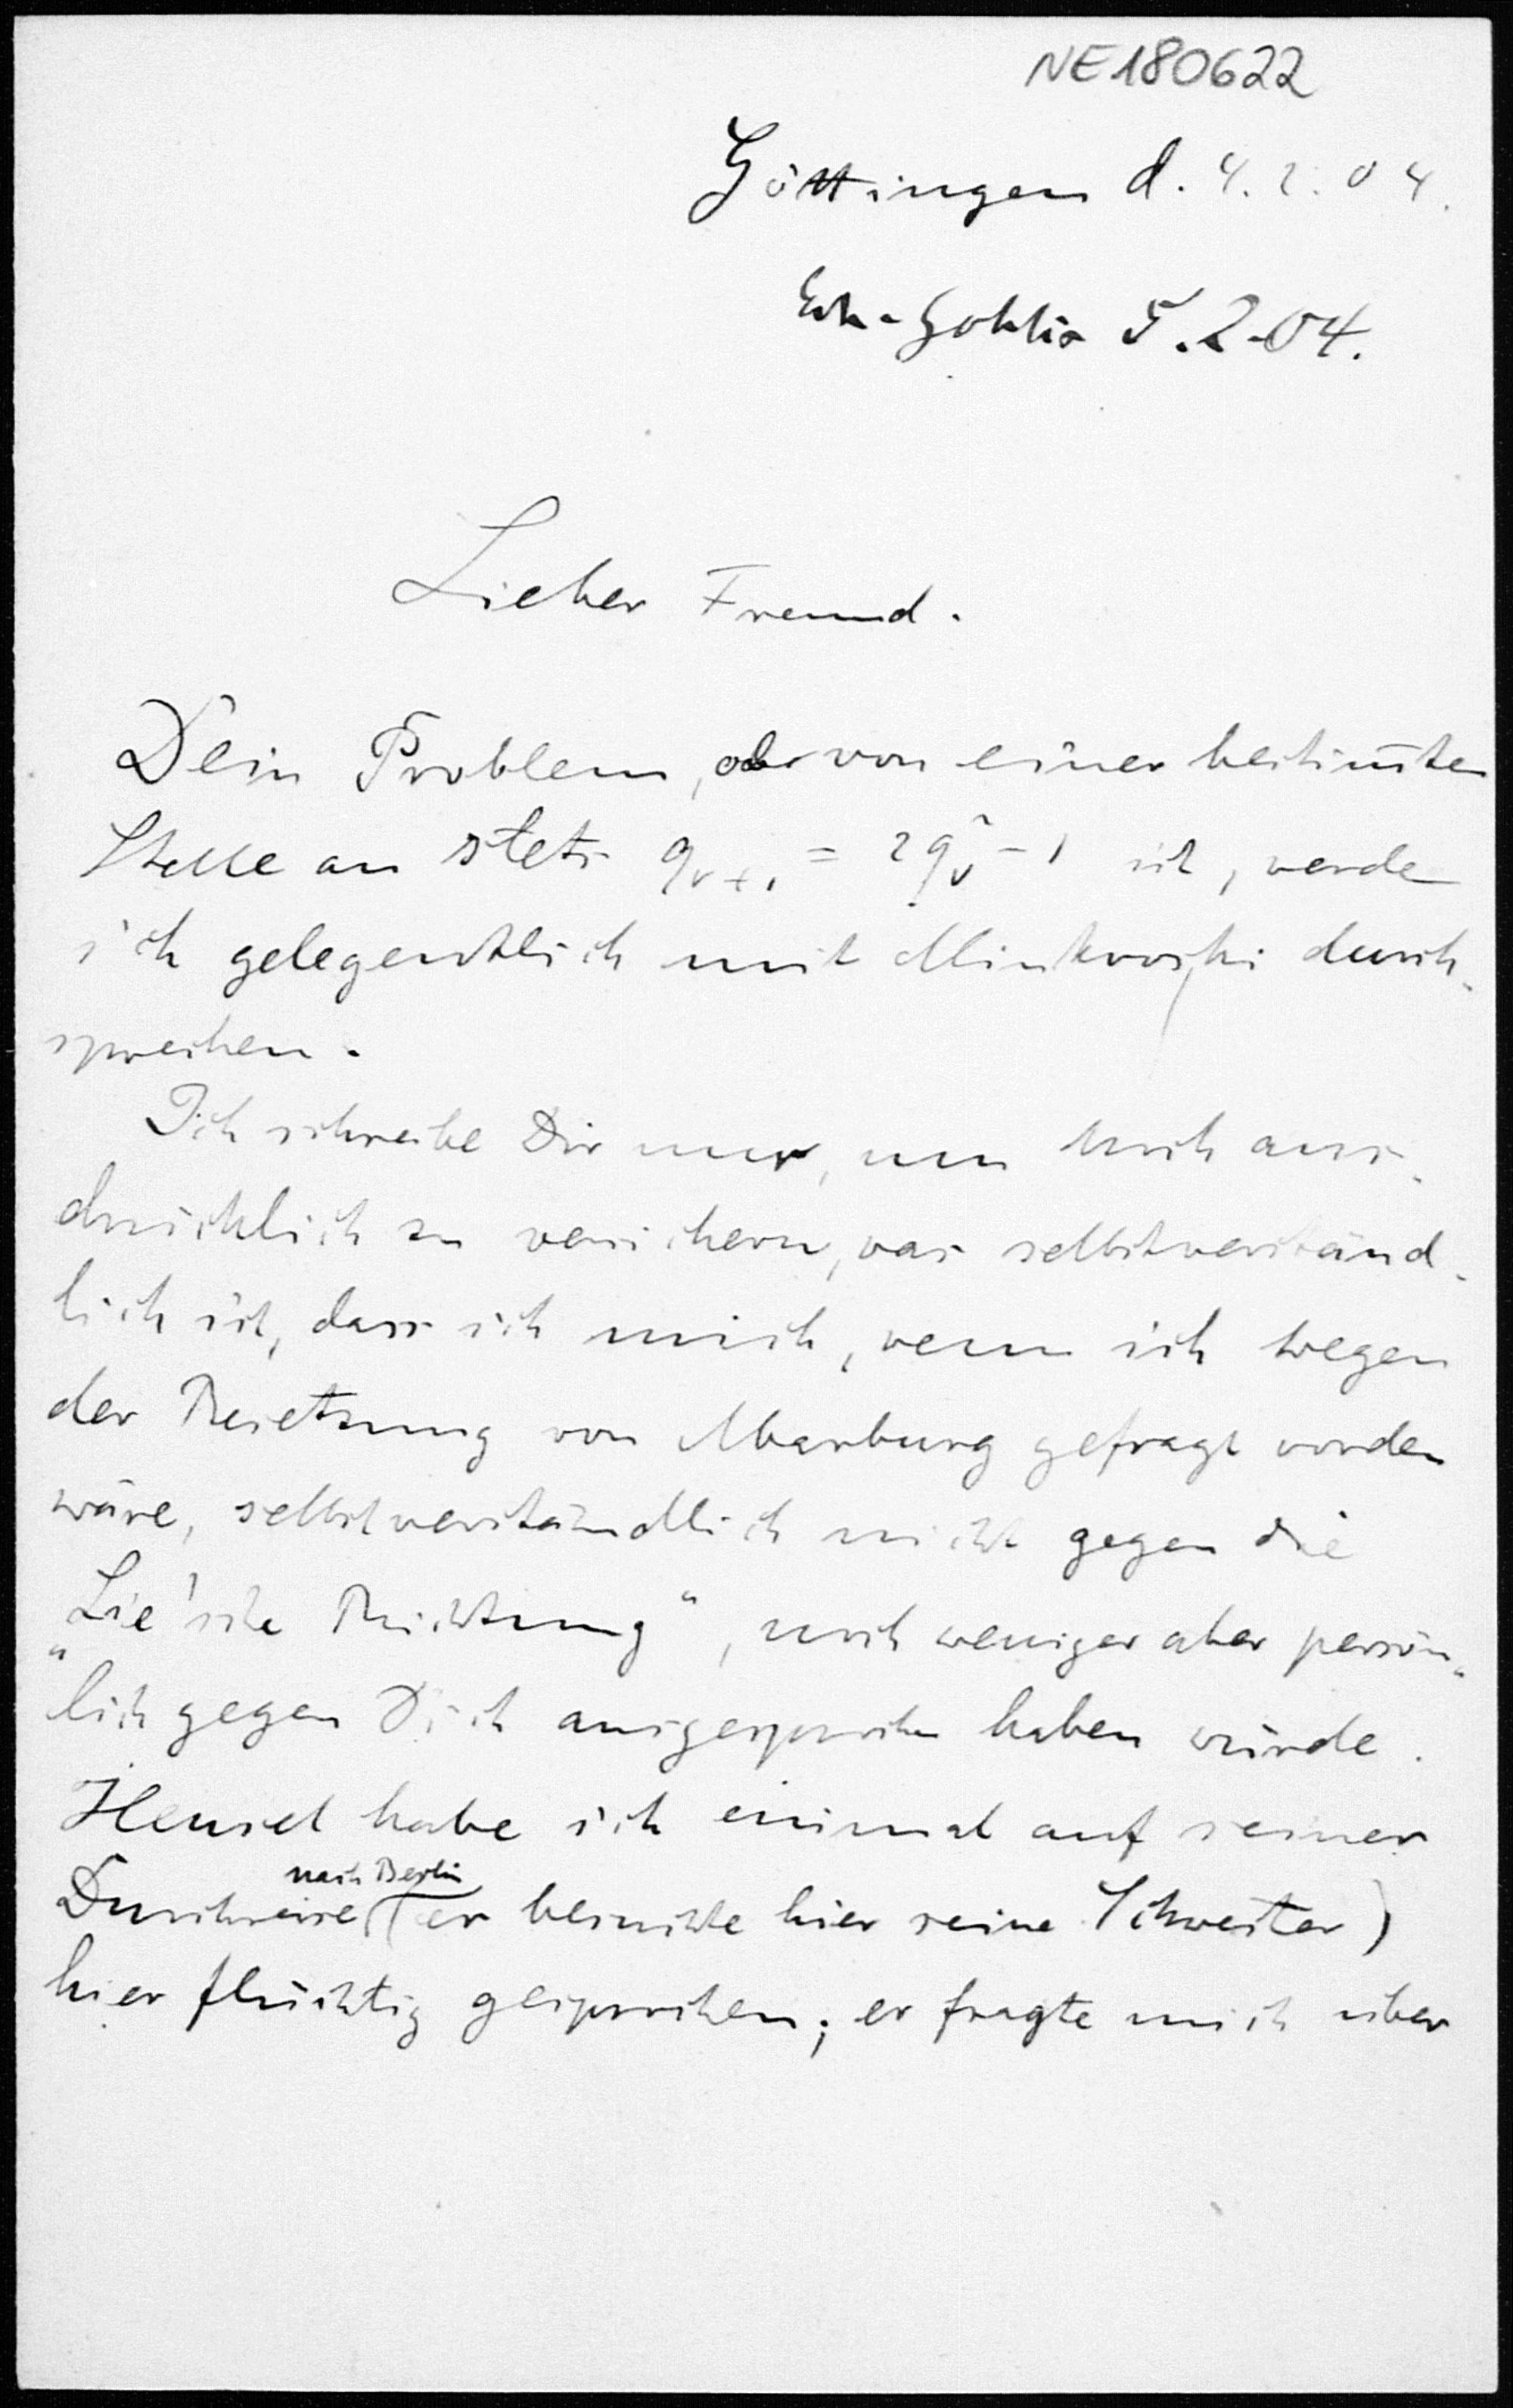 NE180622
Göttingen d. 4.2.04.
Erh. Gohlis 5.2.04.
Lieber Freund.
Dein Problem, ob von einer bestim̅ten
Stelle an stets q_{ν+1} = 2q_ν² - 1 ist, werde
ich gelegentlich mit Minkowski durch-
sprechen.
Ich schreibe Dir nur, um noch aus-
drücklich zu versichern, was selbstverständ-
lich ist, dass ich mich, wenn ich wegen
der Besetzung von Marburg gefragt worden
wäre, selbstverständlich nicht gegen die
„Lie'sche Richtung“, noch weniger aber persön-
lich gegen Dich ausgesprochen haben würde.
Hensel habe ich einmal auf seiner
nach Berlin
Durchreise (er besuchte hier seine Schwester)
hier flüchtig gesprochen; er fragte mich über